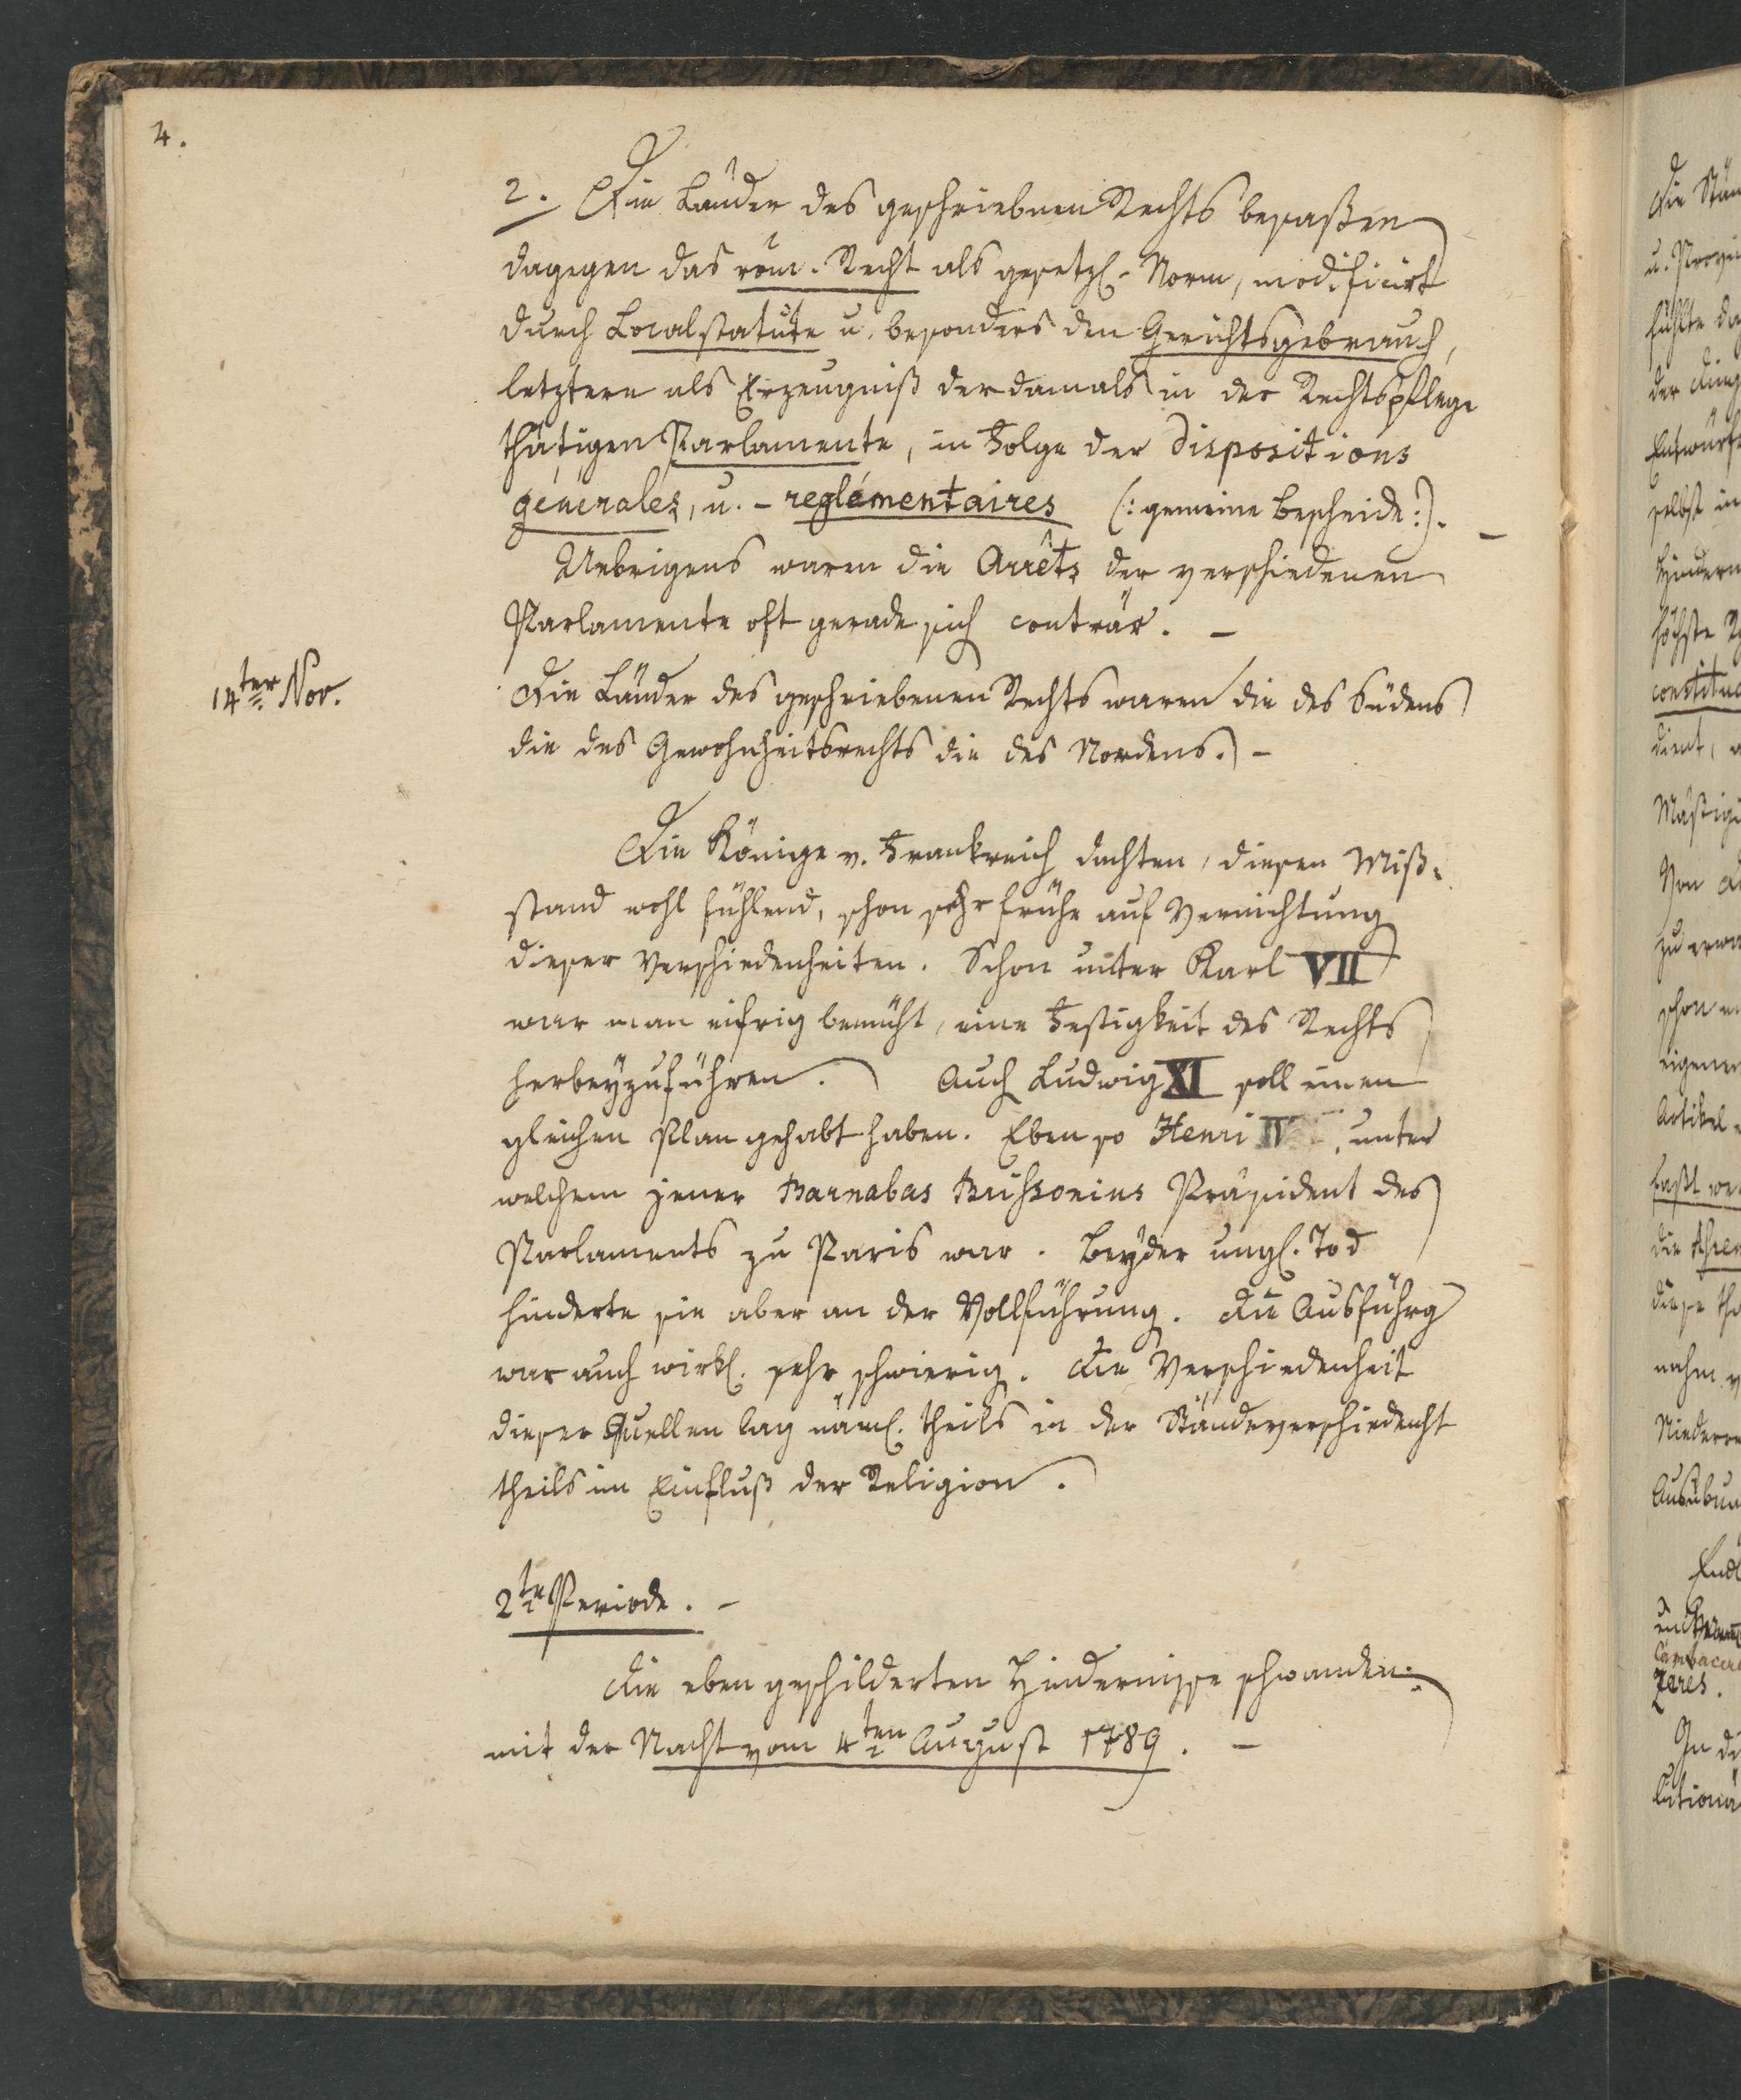 4.
2. Die Länder des geschriebnen Rechts besaßen
dagegen das röm. Recht als gesetzl. Norm, modificirt
durch Localstatute u. besonders den Gerichtsgebrauch,
letztere als Erzeugniß der damals in der Rechtspflege
thätigen Parlamente, in Folge der dispositions
génerales, u. - reglémentaires (: gemeine Bescheide :). -
Uebrigens waren die Arrêts der verschiedenen
Parlamente oft gerade sich conträr. -
14ter Nov.
Die Länder des geschriebenen Rechts waren die des Südens
die des Gewohnheitsrechts die des Nordens. -
Die Könige v. Frankreich dachten, diesen Miß-
stand wohl fühlend, schon sehr frühe auf Vernichtung
dieser Verschiedenheiten. Schon unter Karl VII
war man eifrig bemüht, eine Festigkeit des Rechts
herbeyzuführen. Auch Ludwig XI soll einen
gleichen Plan gehabt haben. Eben so Henri IV, unter
welchem jener Barnabas Brissonius Präsident des
Parlaments zu Paris war. Beyder ungl. Tod
hinderte sie aber an der Vollführung. Die Ausführg
war auch wirkl. sehr schwierig. Die Verschiedenheit
dieser Quellen lag näml. theils in der Ständeverschiedenht
theils im Einfluß der Religion.
2te Periode. -
Die eben geschilderten Hindernisse schwanden
mit der Nacht vom 4ten August 1789. -